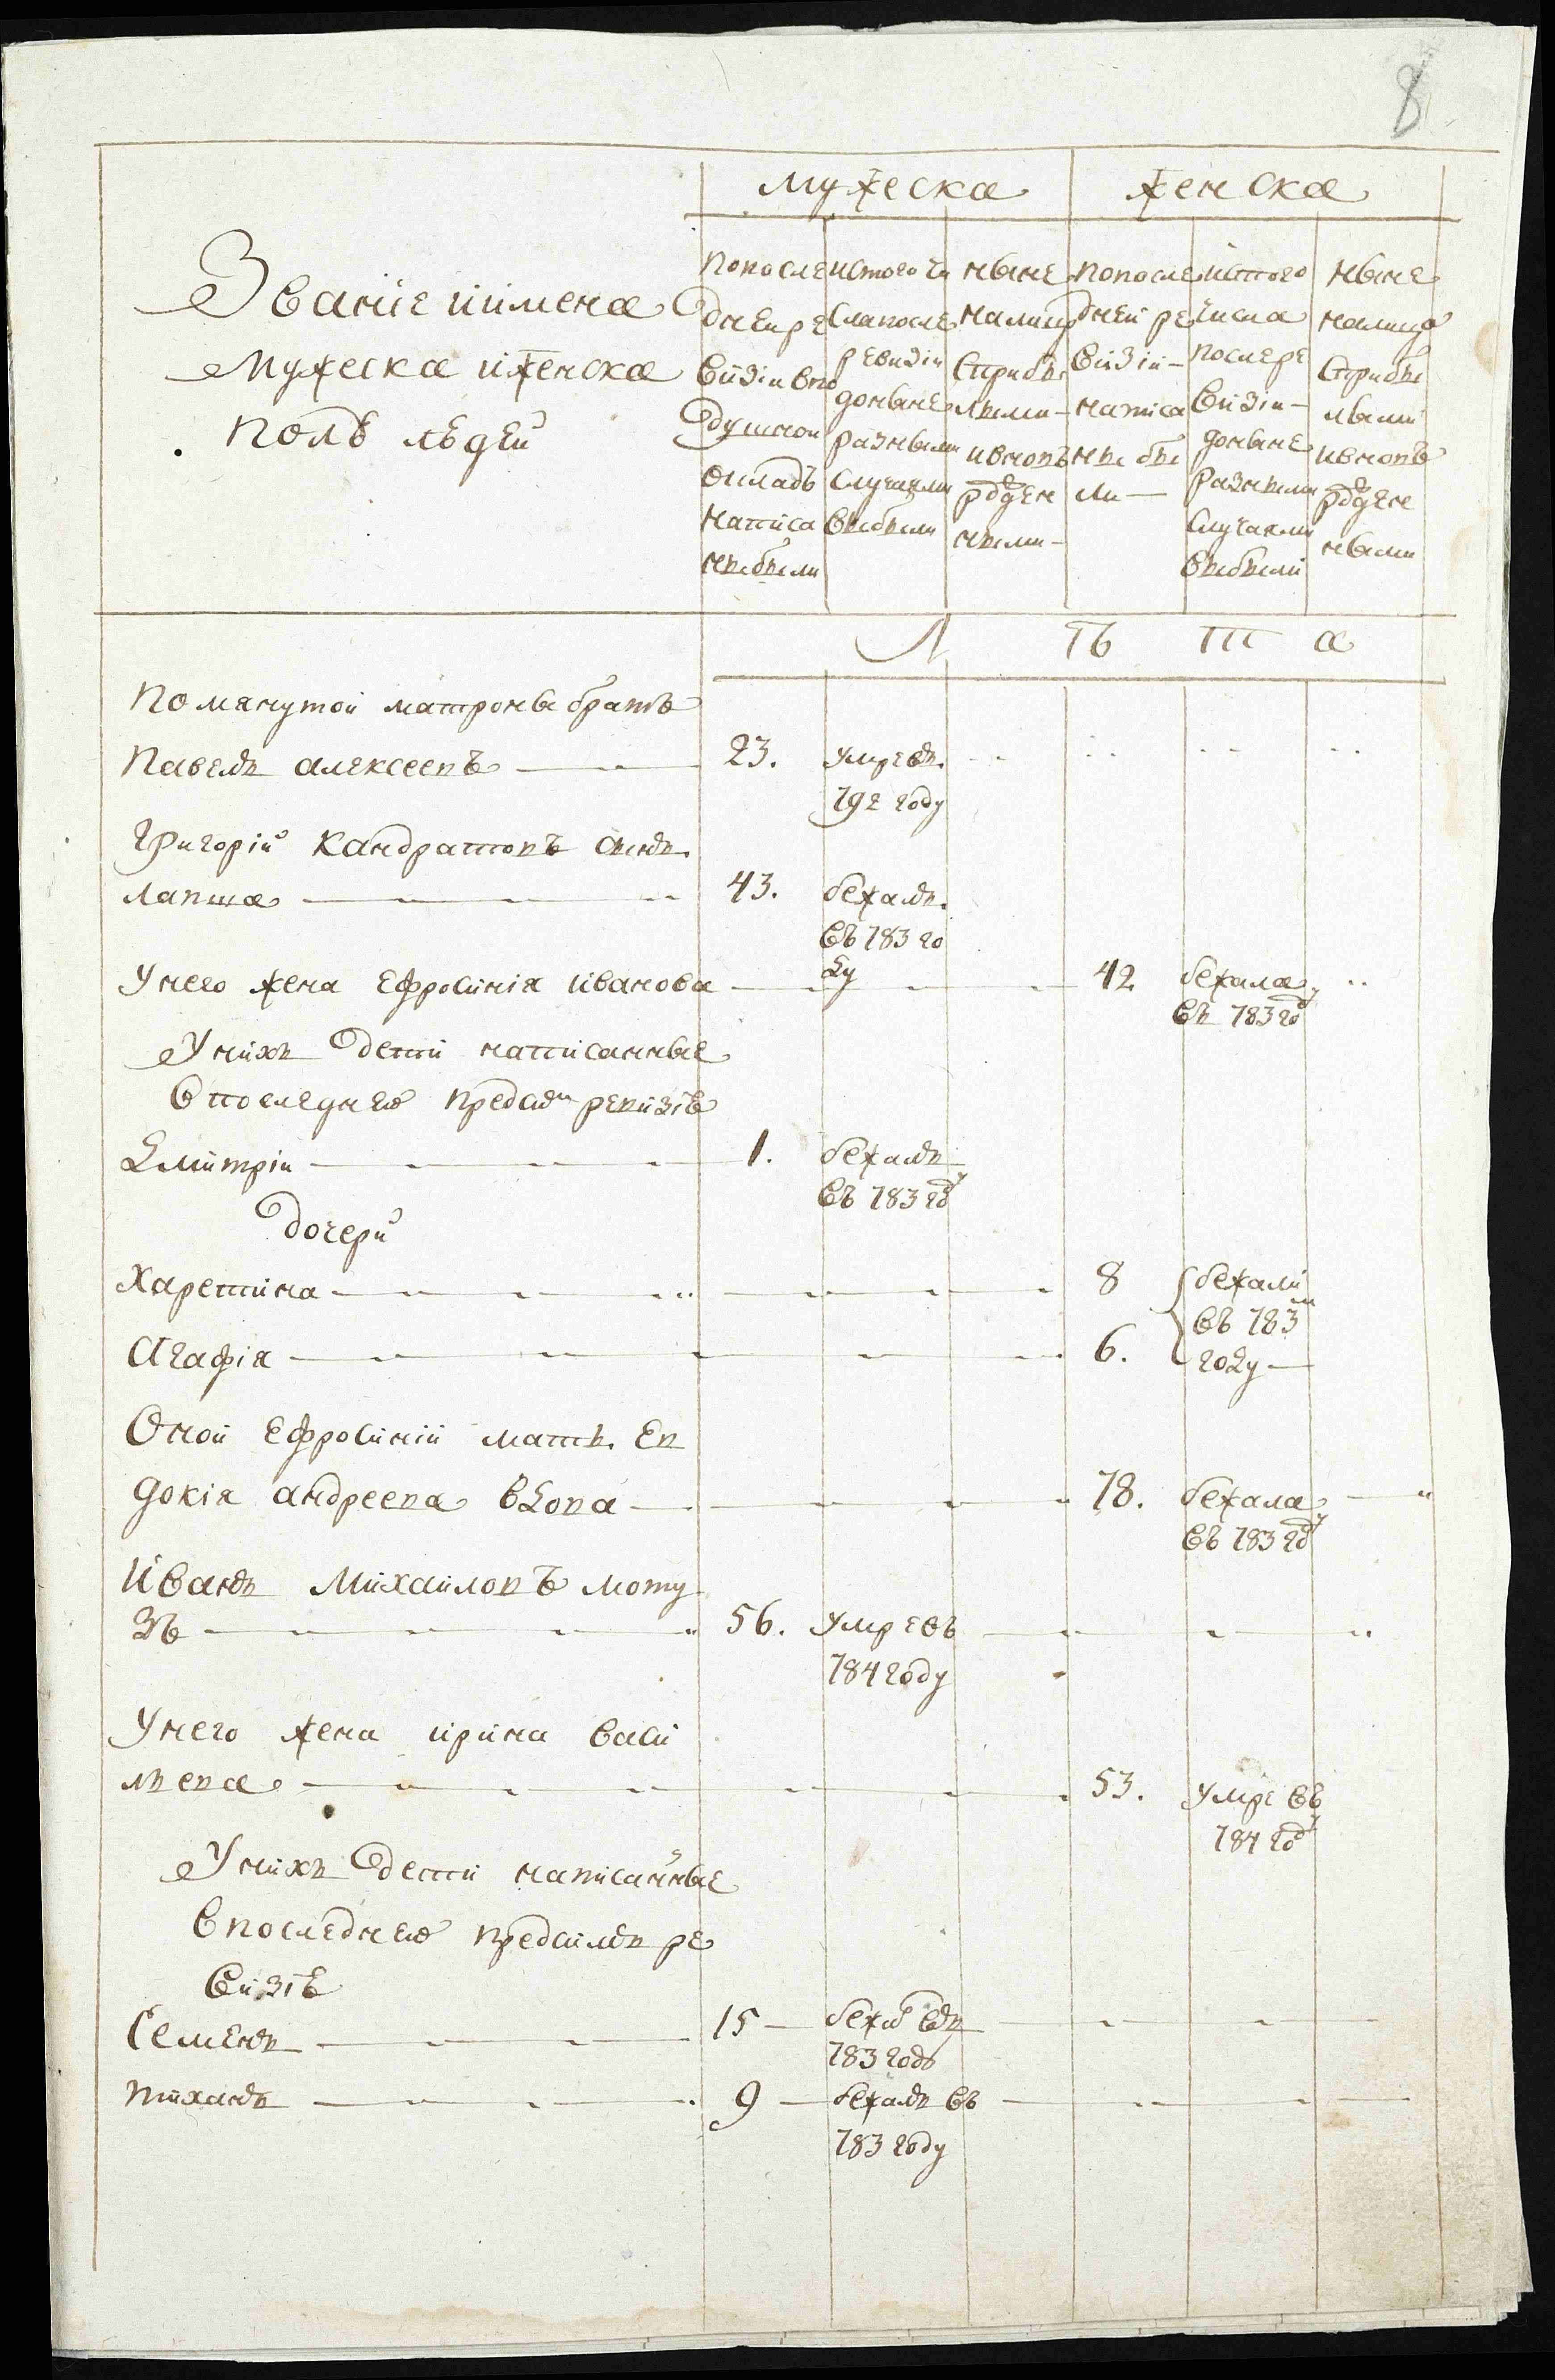 8
мужеска женска
Званiе иимена
Мужеска иженска
полъ лѣдей
попосле
дней ре
визiи впо
душной
окладъ
написа
ны были
истого чи
сла после
ревизiи
доныне
разными
случаями
выбыли
ныне
налицо
сприбы
лыми
ивновь
рожден
ными
попосле
дней ре
визiи
написа
ны бы
ли
истого
числа
после ре
визiи
доныне
разными
случаями
выбыли
ныне
налицо
сприбы
лыми
ивновь
рожден
ными
Л ѣ т а
Помянутой матроны братъ
Павелъ алексеевъ 23. умре въ
792 году
Григорiй Кандратовъ сынъ
лапша 43. бежалъ
въ 783 го
ду
Унего жена Ефросинiя иванова 42 бежала
въ 783 году
Унихъ дети написанные
впоследнею предсим ревизiѣ
Дмитрiи 1. бежалъ
въ 783 году
дочери
Харетина 8 бежали
въ 783м
Агафiя 6. году
Оной Ефросинiи мать Ев
докiя андреева вдова 78. бежала
въ 783 году
Иванъ Михаиловъ моту
зъ 56. умре въ
784 году
Унего жена ирина васи
льева 53. умре въ
784 году
Унихъ дети написанные
впоследнею предсимъ ре
визiѣ
Семенъ 15 бежал въ
783 годъ
тиханъ 9 бежалъ въ
783 году